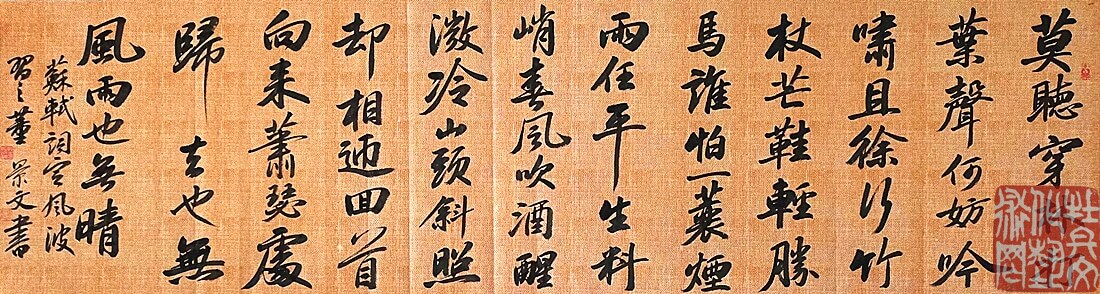 莫聽穿
葉聲何妨吟
嘯且徐行竹
杖芒鞋輕勝
馬誰怕一蓑煙
雨任平生料
峭春風吹酒醒
微冷山頭斜照
却相迎回首
向来蕭瑟處
歸去也無
風雨也無晴
蘇軾詞定風波
董景文書